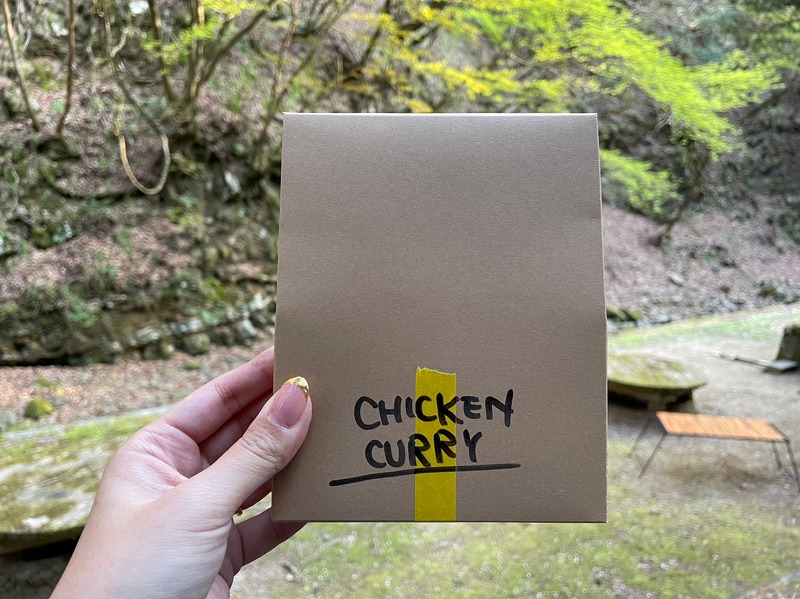 CHICKEN
CURRY